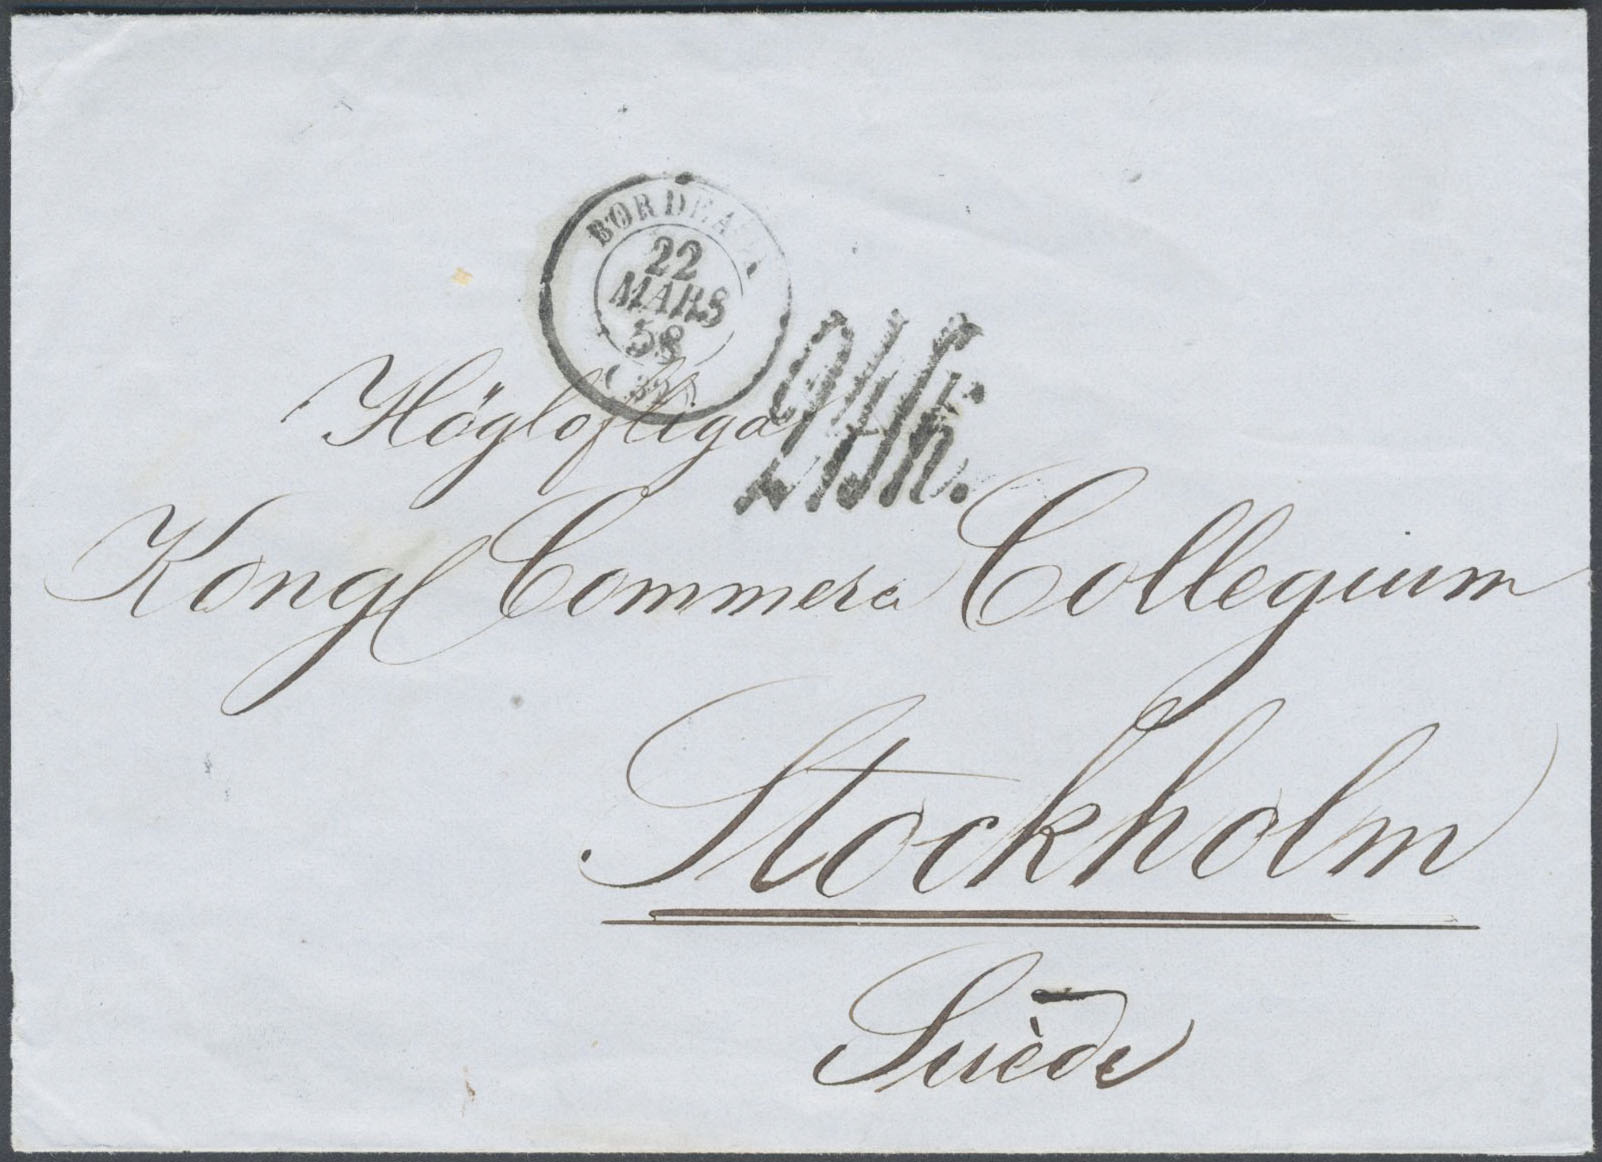 BORDEAUX
22
MARS
58
(32)
Högloftliga
Kongl Commers Collegium
Stockholm
Suède